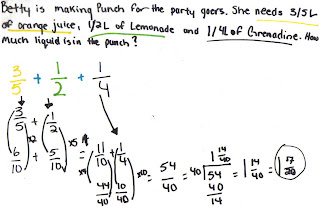 Betty is making Punch for the party goers. She needs 3/5L
of orange juice, 1/2 L of Lemonade and 1/4L of Grenadine. How
much liquid is in the punch?
3/5 + 1/2 + 1/4
(3/5 + 1/2) x2 x5
6/10 + 5/10 = (11/10 + 1/4) x4 x10
44/40 10/40 = 54/40 = 40 54 1 14/40 40 14 = 1 14/40 = 1 17/20